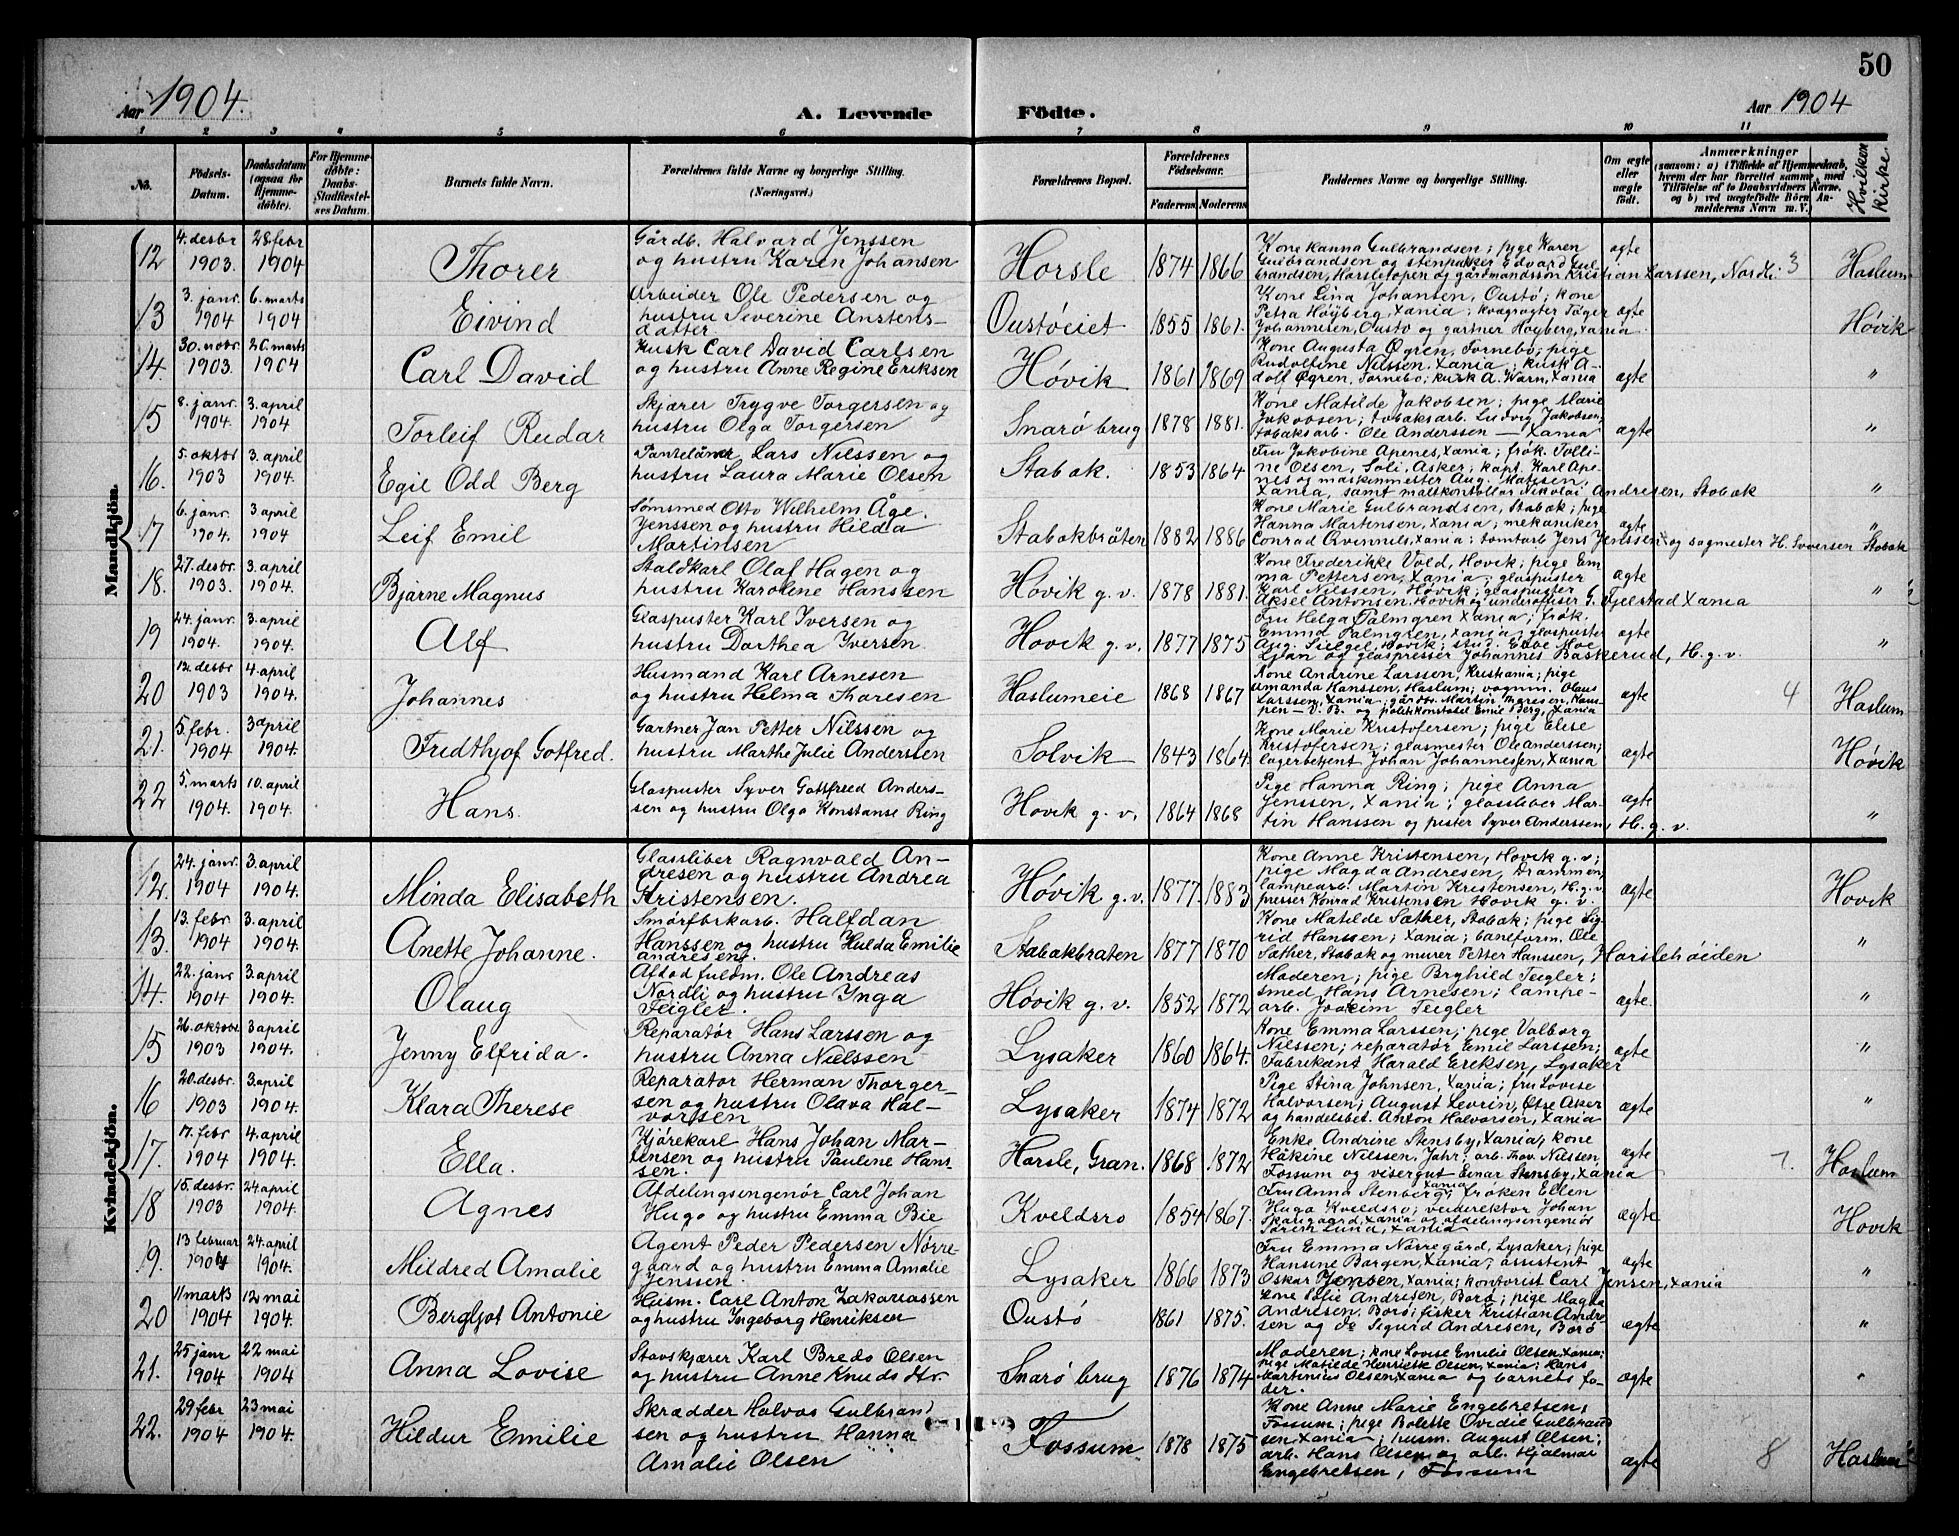 50
Aar 1904. A. Levende Födte. Aar 1904
1 2 3 4 5 6 7 8 9 10 11
No. Födsels-Datum. Daabsdatum (ogsaa for Hjemme-döbte). For Hjemme-döbte: Daabs-Stadfæstel-ses Datum. Barnets fulde Navn. Forældrenes fulde Navne og borgerlige Stilling. (Næringsvei.) Forældrenes Bopæl. Forældrenes Födselsaar. Faderens Moderens Faddernes Navne og borgerlige Stilling. Om ægte eller uægte födt. Anmærkninger (saasom: a) i Tilfælde af Hjemmedaab, hvem der har forrettet samme, med Tilföielse af to Daabsvidners Navne, og b) ved uægtefödte Börn An-melderens Navn m. V.) Hvilken Kirke.
Mandkjön.
12 4. desbr 1903. 28. febr 1904 Thorer Gårdb. Halvard Jenssen og hustru Karen Johansen Horsle 1874 1866 Kone Hanna Gulbrandsen; pige Karen Gulbrandsen og stenpukker Edvard Gulbrandsen, Horsletopen og gårdmandssøn Kristian Larssen, Nordli. ægte 3 Haslum
13 3. janr. 1904 6. marts 1904 Eivind Arbeider Ole Pedersen og hustru Severine Anstensdatter Oustøeiet 1855 1861. Kone Lina Johansen, Oustø; kone Petra Høyberg, Xania; kvægrøgter Tøger Johannesen, Oustø og gartner Høyberg, Xania ægte Høvik
14. 30. nobr. 1903. 20. marts 1904 Carl David Kusk Carl David Carlsen og hustru Anne Regine Eriksen Høvik 1861 1869 Kone Augusta Øgren, Fornebo; pige Rudolfine Nilssen, Xania; kusk Adolf Øgren, Fornebo; kusk A. Warn, Xania ægte "
15 8. janr. 1904. 3. april 1904 Torleif Reidar Skjærer Trygve Torgersen og hustru Olga Torgersen Snarø brug 1878 1881. Kone Matilde Jakobsen; pige Marie Jakobsen; tobaksarb. Ludvig Jakobsen; tobaksarb. Ole Anderssen — Xania ægte "
16. 5. oktbr 1903 3. april 1904. Egil Odd Berg Pantelåner Lars Nilssen og hustru Laura Marie Olsen Stabæk. 1853 1864 Fru Jakobine Apenes, Xania; frøk. Tolline Olsen, Soli, Asker; kapt. Karl Apenes og maskinmester Aug. Matisen, Xania, samt maltkontrollør Nikolai Andresen, Stabæk "
17 6. janr. 1904. 3 april 1904 Leif Emil Sømsmed Otto Wilhelm Åge. Jenssen og hustru Hilda Martinsen Stabækbråten 1882 1886 Kone Marie Gulbrandsen, Stabæk; pige Hanna Martensen, Xania; mekaniker Conrad Qvennils, Xania; tomtarb Jens Jenssen og sagmester H. Syversen Stabæk ægte "
18. 27. desbr. 1903. 3. april 1904. Bjarne Magnus Staldkarl Olaf Hagen og hustru Karolene Hanssen Høvik g. v. 1878 1881. Kone Frederikke Vold, Høvik; pige Emma Pettersen, Xania; glaspuster Karl Nilssen, Høvik; glaspuster Aksel Antonsen, Høvik og underofficer G. Fjelstad Xania ægte "
19 24. janr. 1904. 3. april 1904. Alf Glaspuster Karl Iversen og hustru Dorthea Iversen. Høvik g. v. 1877 1875 Fru Helga Palmgren Xania; frøk. Emma Palmgren, Xania; glaspuster Aug. Sielgel, Høvik; stud. Ebbe Moe Ljan og glaspresser Johannes Baskerud, H. g. v. ægte "
20 12. desbr. 1903 4. april 1904. Johannes Husmand Karl Arnesen og hustru Helma Thoresen Haslumeie 1868 1867 Kone Andrine Larssen, Kristiania; pige Amanda Hanssen, Haslum; vognm. Olaus Larssen, Xania; gårdbr. Martin Thoresen, Kampen — V. B. og politikonstabel Emil Berg, Xania ægte 4 Haslum
21. 5. febr. 1904 3 april 1904. Fridthjof Gotfred. Gartner Jan Petter Nilssen og hustru Marthe Julie Anderssen Solvik 1843 1864. Kone Marie Kristofersen; pige Elise Kristofersen; glasmester Ole Anderssen; lagerbetjent Johan Johannesen, Xania ægte Høvik
22 5. marts 1904. 10. april 1904. Hans. Glaspuster Syver Gottfreed Anderssen og hustru Olga Konstanse Ring Høvik g. v. 1864 1868 Pige Hanna Ring; pige Anna Jenssen, Xania; glassliber Martin Hanssen og puster Syver Anderssen, H. g. v. ægte "
Kvindekjön.
12. 24. janr. 1904 3. april 1904. Minda Elisabeth Glassliber Ragnvald Andresen og hustru Andrea Kristensen. Høvik g. v. 1877. 1883 Kone Anne Kristensen, Høvik g. v; pige Magda Andresen, Drammen, lampearb. Martin Kristensen, H. g. v. presser Konrad Kristensen Høvik g. v. ægte Høvik
13. 13. febr 1904 3. april 1904. Anette Johanne. Smørfbrkarb. Halfdan Hanssen og hustru Hulda Emilie Andresen. Stabækbråten 1877 1870 Kone Matilde Sæther, Stabæk; pige Sigrid Hanssen; Xania; baneform. Ole Sæther, Stabæk og murer Petter Hanssen, Horslehøiden "
14. 22. janr 1904 3. april 1904. Olaug Afsod fuldm. Ole Andreas Nordli og hustru Ynga Teigler. Høvik g. v. 1852 1872 Moderen; pige Brghild Teigler; smed Hans Arnesen; lampearb. Joakim Teigler ægte. "
15 26. oktobr 1903 3 april 1904. Jenny Elfrida. Reparatør Hans Larssen og hustru Anna Nielssen Lysaker 1860 1864. Kone Emma Larssen; pige Valborg Nilssen; reparatør Emil Larssen; Fabrikant Harald Eriksen, Lysaker ægte "
16 20. desbr. 1903 3. april 1904. Klara Therese Reparatør Herman Thorgersen og hustru Olava Halvorsen Lysaker 1874 1872 Pige Stina Johnsen, Xania; fru Lovise Halvorsen; August Levrin, Østre Aker og handelsbet. Anton Halvorsen, Xania ægte "
17. 7. febr 1904 4. april 1904. Ella. Kjørekarl Hans Johan Martensen og hustru Pauline Hanssen. Horsle, Gran. 1868 1872 Enke Andrine Stensby, Xania; kone Håkine Nilssen, Jahr; arb. Thov. Nilssen Fossum og visergut Einar Stensby, Xania ægte 7. Haslum
18 15. desbr. 1903 24. april 1904. Agnes Afdelingsingenør Carl Johan Hugo og hustru Emma Bie Kveldsro 1854 1867. Fru Anna Stenberg, Xania frøken Ellen Hugo Kveldsro; veidirektør Johan Skougaard, Xania og afdelingsingeniør Søren Lund, Xania ægte Høvik
19. 13 februar 1904 24. april 1904. Mildred Amalie Agent Peder Pedersen Nørregaard og hustru Emma Amalie Jenssen. Lysaker 1866 1873 Fru Emma Nørregård, Lysaker; pige Hansine Borgen, Xania; assistent Oskar Jensen, Xania; kontorist Carl Jensen, Xania ægte "
20 11 marts 1904 12 mai 1904. Bergljot Antonie Husm. Carl Anton Zakariassen og hustru Ingeborg Henriksen Oustø 1861 1875. Kone Julie Andresen, Borø; pige Magda Andresen, Borø; fisker Kristian Andresen og do Sigurd Andresen, Borø ægte "
21. 25 janr 1904 22 mai 1904 Anna Lovise Stavskjærer Karl Bredo Olsen og hustru Anne Knudsdtr. Snarø brug 1876 1874 Moderen; kone Lovise Emilie Olsen, Xania; pige Matilde Henriette Olsen, Xania; Hans Martinius Olsen, Xania og barnets fader. ægte "
22. 29 febr 1904 23 mai 1904. Hildur Emilie Skrædder Halvor Gulbrandsen og hustru Hanna Amalie Olsen Fossum 1878 1875 Kone Anne Marie Engebretsen, Fossum; pige Bolette Ovidie Gulbrandsen Xania; husm. August Olsen; arb. Hans Olsen og arb. Hjalmar Engebretsen, Fossum ægte 8 Haslum